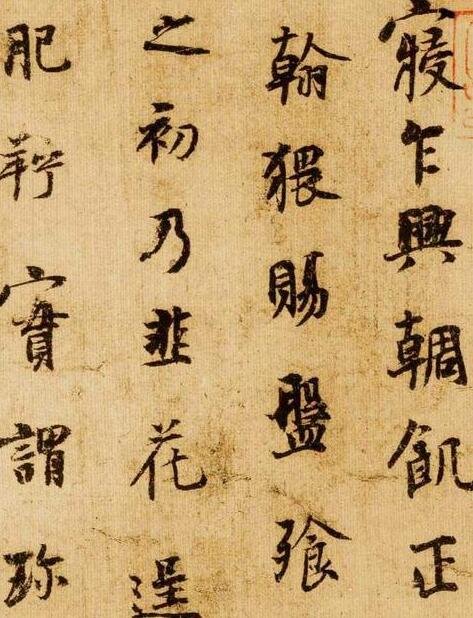 寢乍興輖飢正
翰猥賜盤飧
之初乃韭花逞
肥羜實謂珍